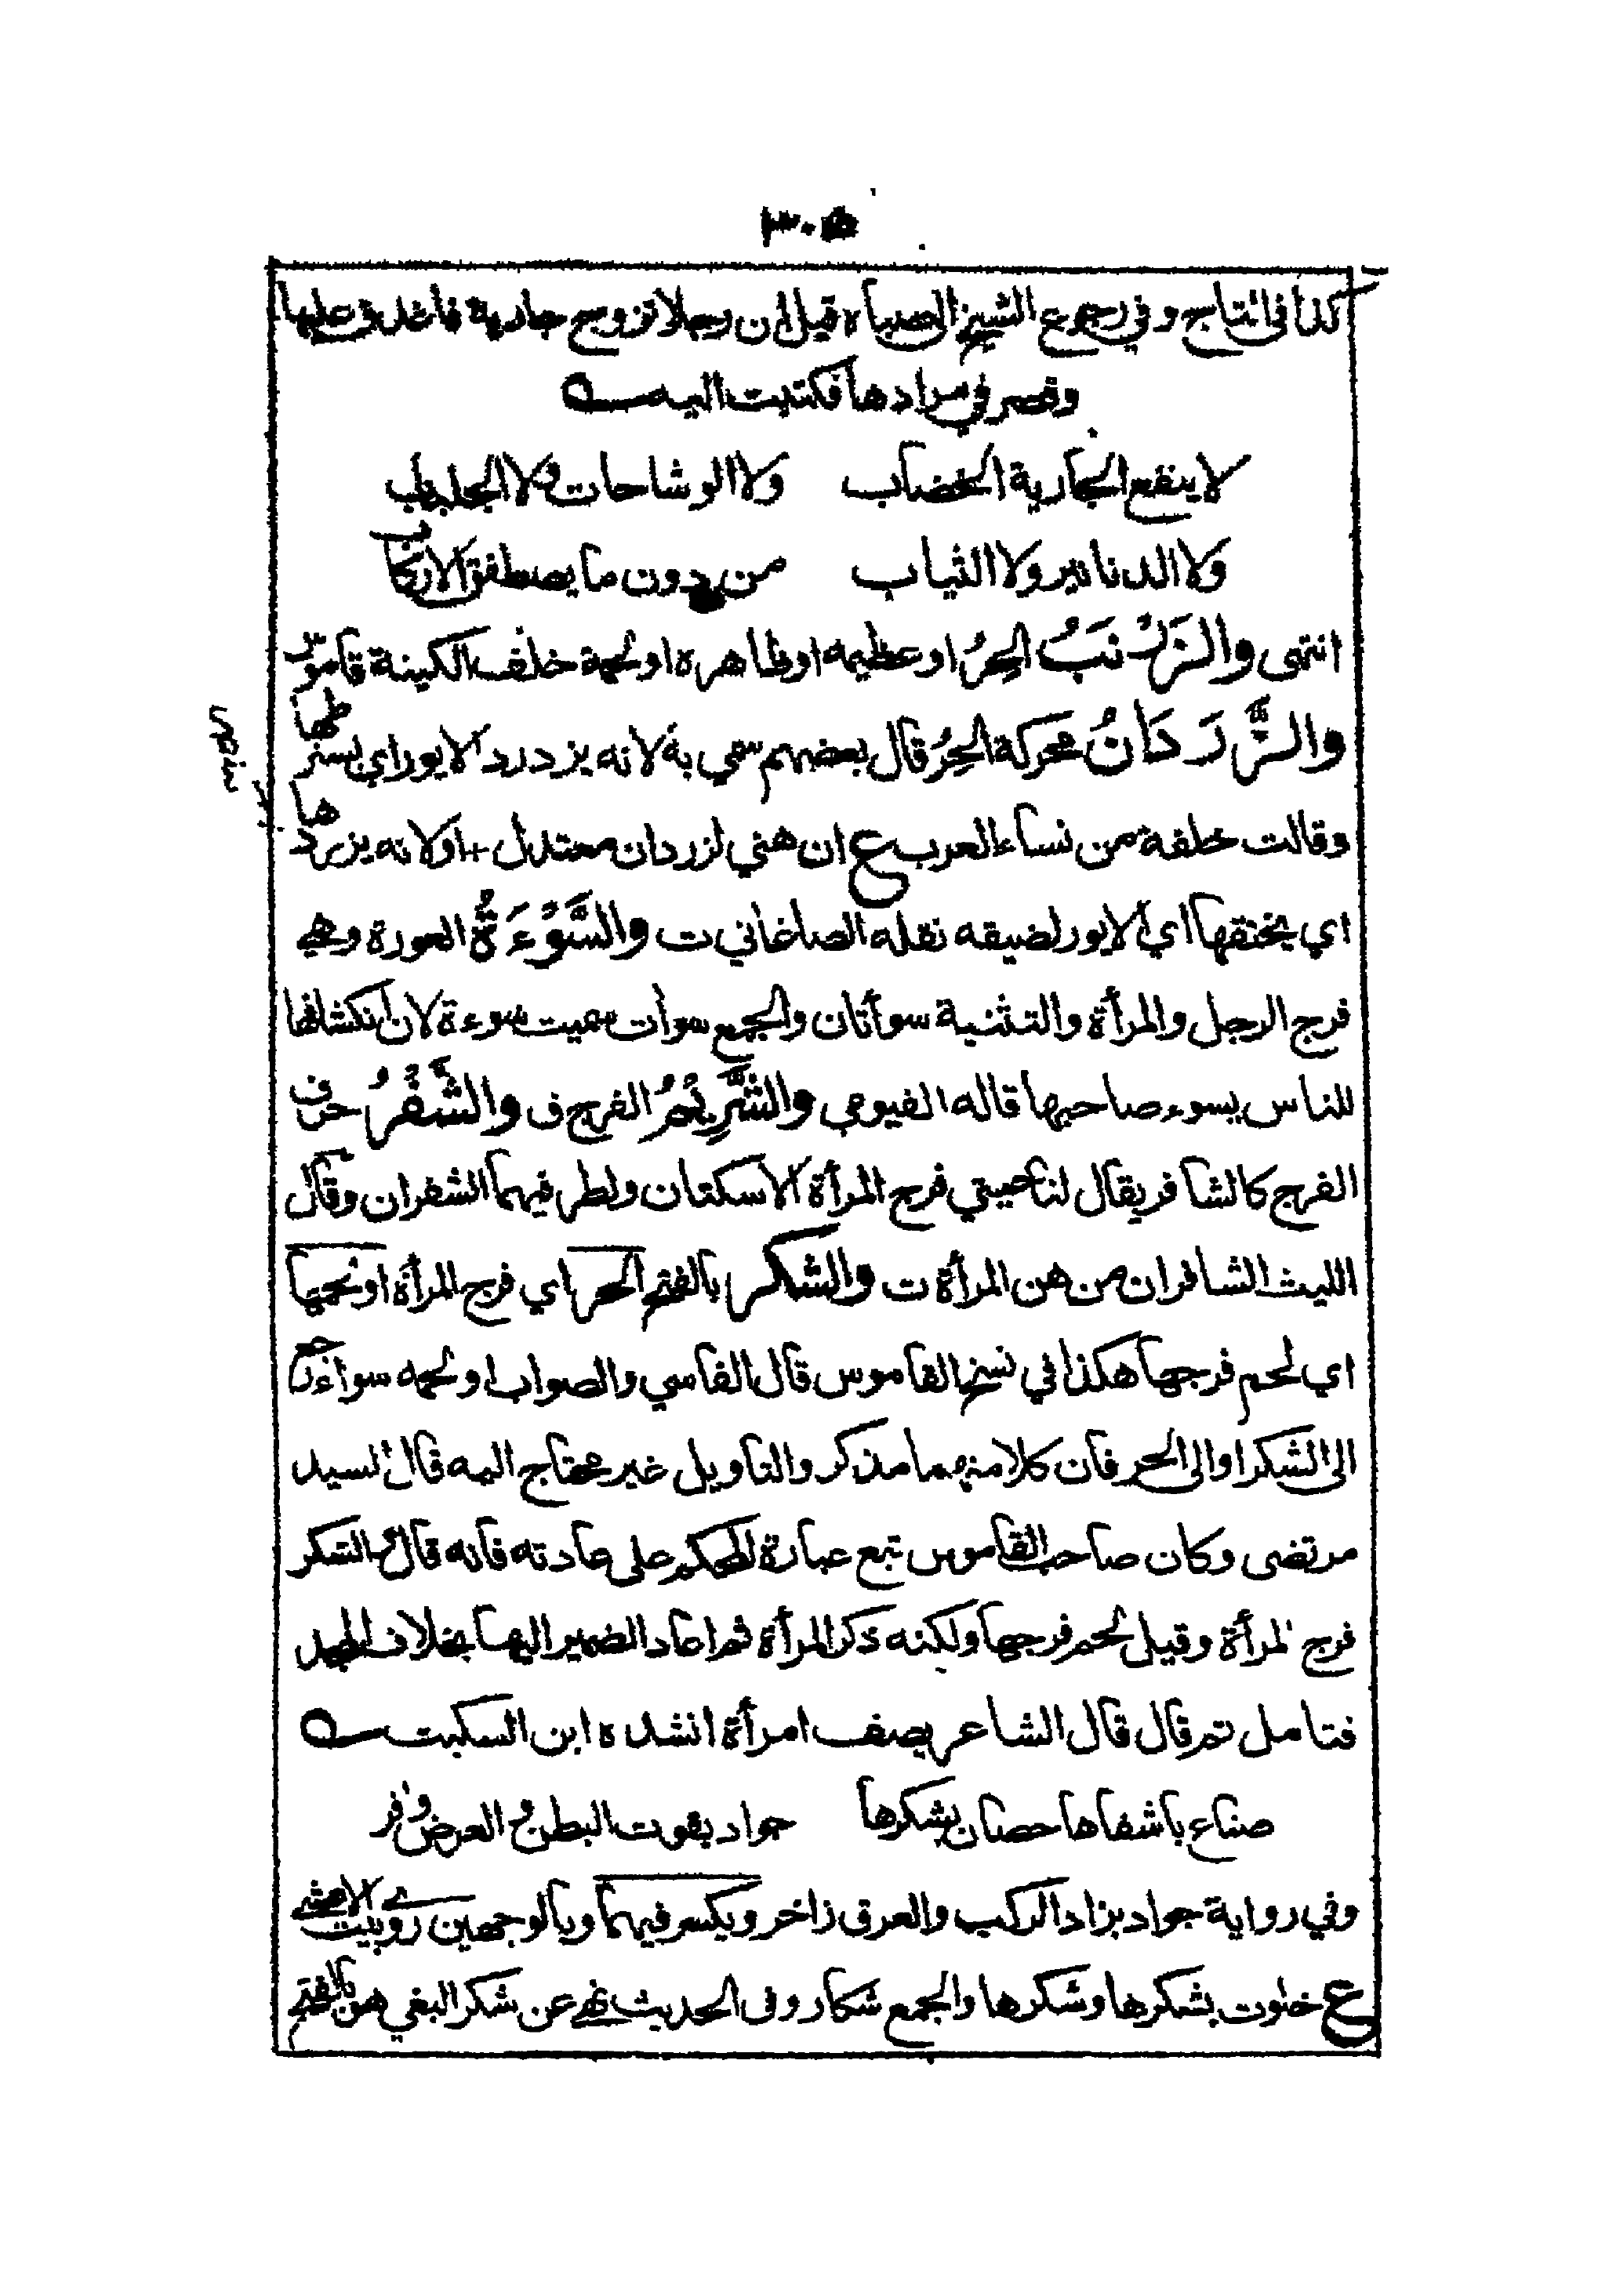 كذا في التاج وفي رجوع الشيخ الى صباه قيل ان رجلا تزوج جارية فأغدق عليها
وقصر في مرادها فكتبت اليه
لا ينفع الجارية الخضاب ولا الوشاحات ولا الجلباب
ولا الدنانير ولا الثياب من دون ما يصطفق الاركاب
انتهى والزَرْنَبُ الحِرُ او عظيمه او ظاهره او لحمة خلف الكينة قاموس
والزَّرَدَانُ محركة الحِرُ قال بعضهم سمي به لانه يزدرد الايور اي يسترطها
وقالت خلفة من نساء العرب ع ان هني لزردان معتدل + او لانه يزردها
اي يخنقها اي الايور لضيقه نقله الصاغاني ت والسَّوْءَةُ العورة وهي
فرج الرجل والمرأة والتثنية سوأتان والجمع سوأت سميت سوءة لان انكشافها
للناس يسوء صاحبها قاله الفيومي والشَّرِيْمُ الفرج ف والشُّفْرُ حرف
الفرج كالشافر يقال لناحيتي فرج المرأة الاسكتان ولطرفيهما الشفران وقال
الليث الشافران من هن المرأة ت والشكر بالفتح الحر اي فرج المرأة او لحمها
اي لحم فرجها هكذا في نسخ القاموس قال الفاسي والصواب او لحمه سواء رجع
الى الشكر او الى الحر فان كلا منهما مذكر والتاويل غير محتاج اليه قال السيد
مرتضى وكان صاحب القاموس تبع عبارة المحكم على عادته فانه قال والشكر
فرج المرأة وقيل لحم فرجها ولكنه ذكر المرأة ثم اعاد الضمير اليها بخلاف المجد
فتامل ثم قال قال الشاعر يصف امرأة انشده ابن السكيت
صناع باشفاها حصان بشكرها جواد بقوت البطن والعرض وافر
وفي رواية جواد بزاد الركب والعرق زاخر ويكسر فيهما وبالوجهين روي بيت الاعشى
ع خلوت بشكرها وشكرها والجمع شكار وفى الحديث نهى عن شكر البغي هو بالفتح